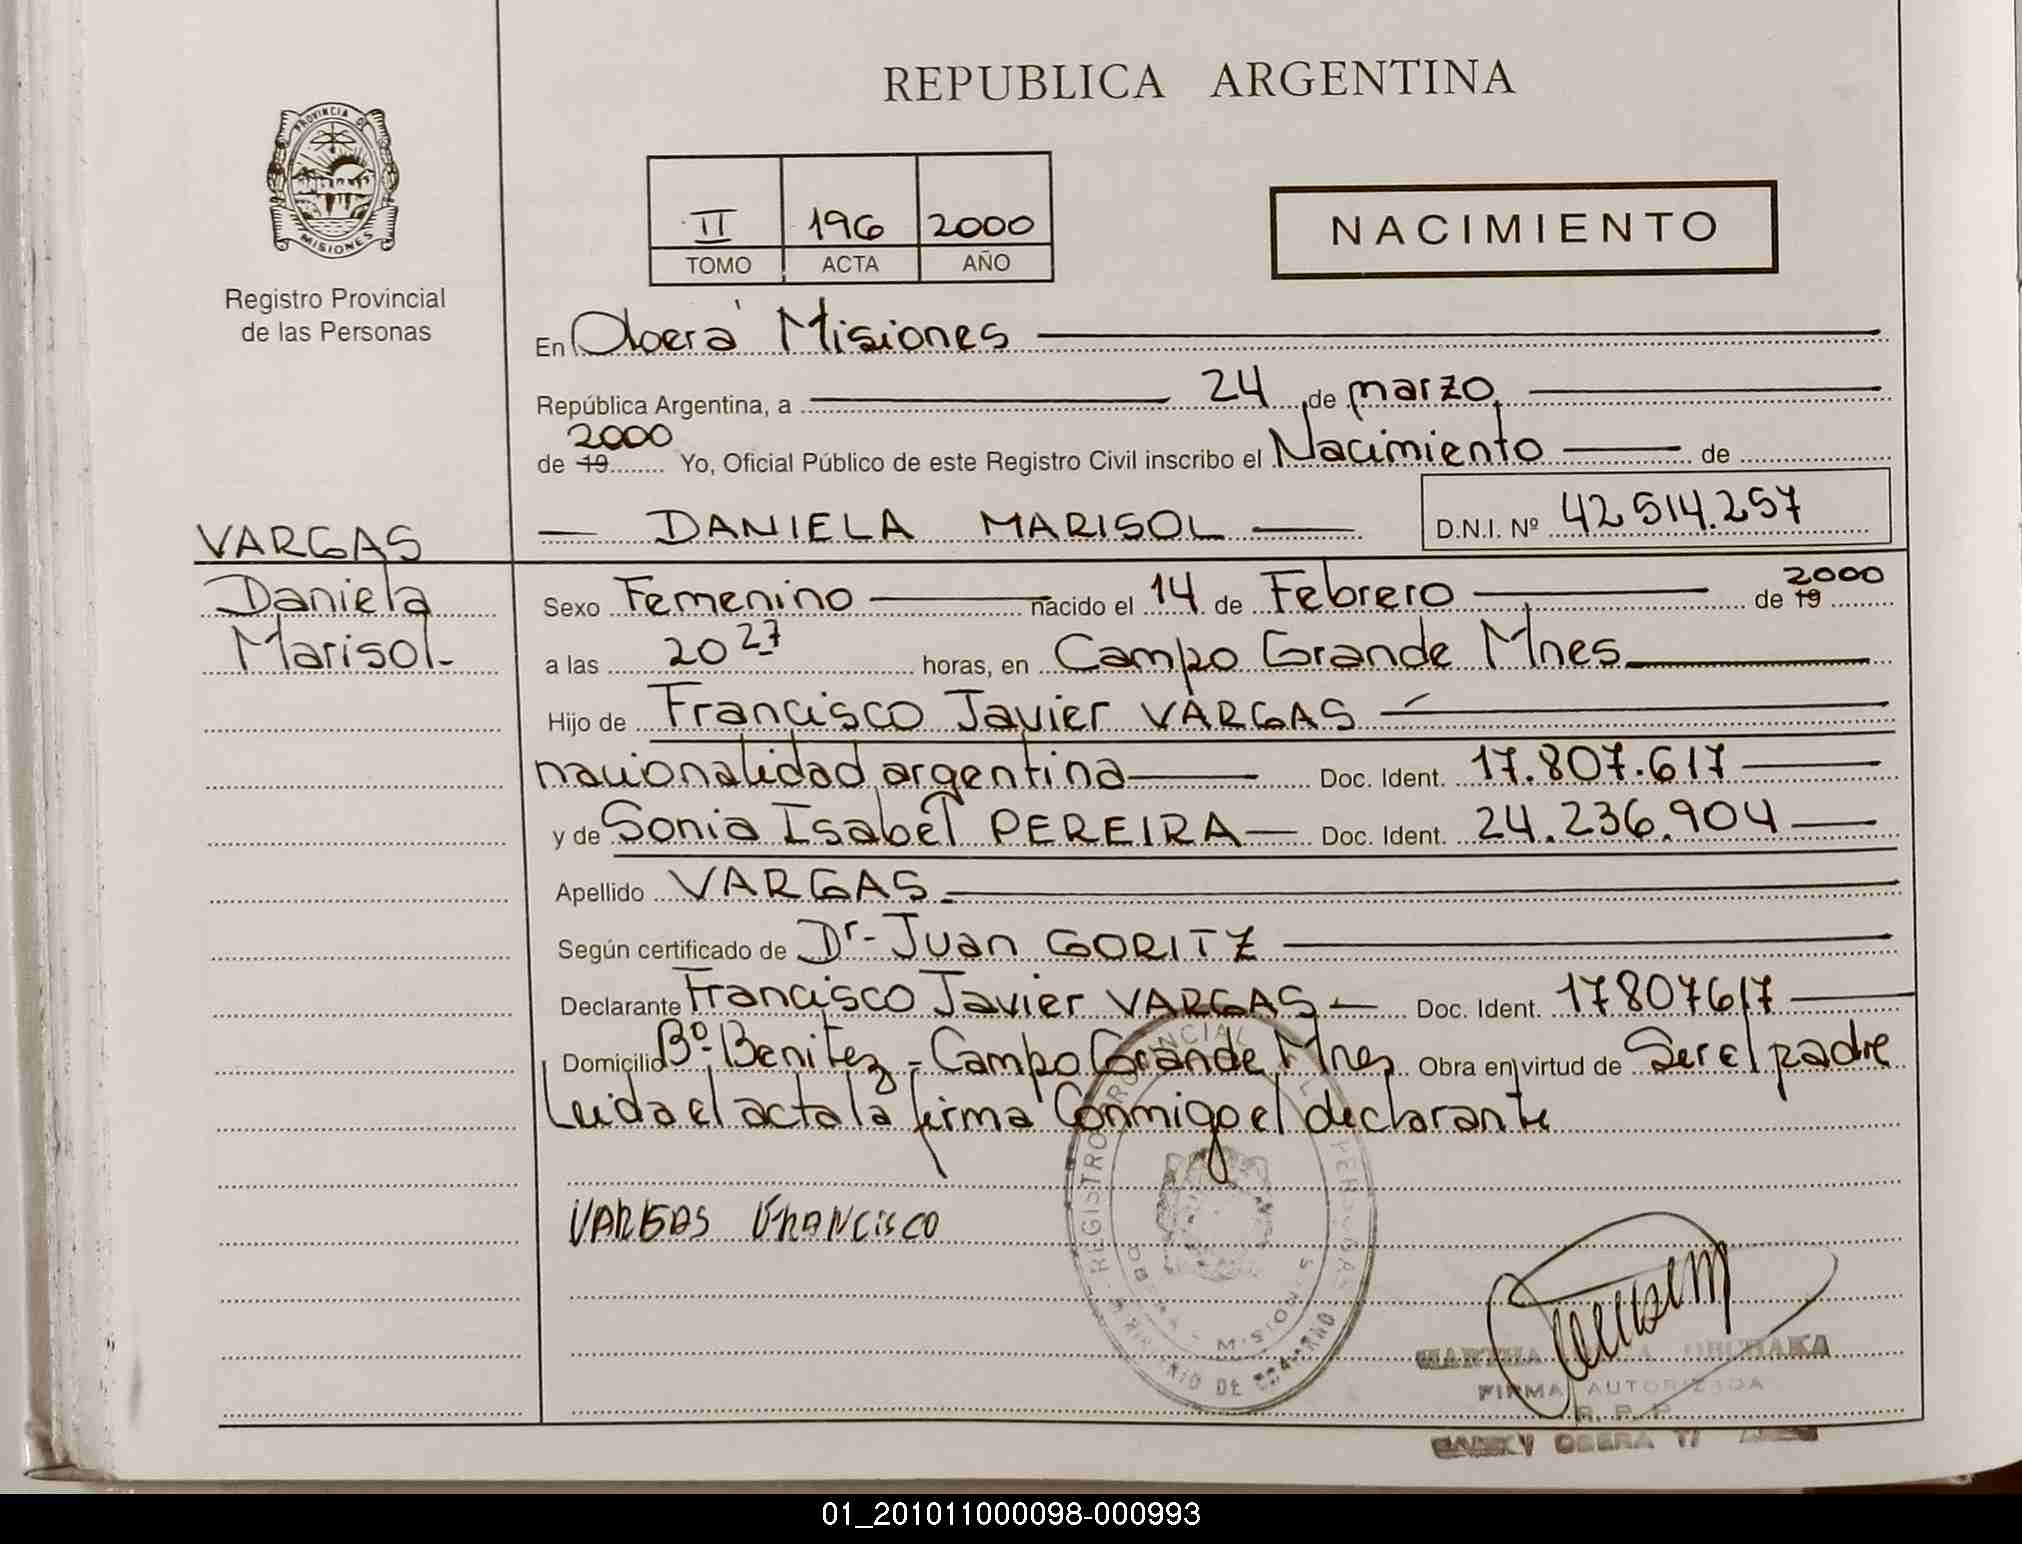 REPUBLICA ARGENTINA
PROVINCIA DE
MISIONES
Registro Provincial
de las Personas
II 196 2000
TOMO ACTA AÑO
NACIMIENTO
En Oberá Misiones
República Argentina, a 24 de marzo
2000
de 19 Yo, Oficial Público de este Registro Civil inscribo el Nacimiento de
VARGAS
DANIELA MARISOL D.N.I. Nº 42.514.257
Daniela
Marisol.
Sexo Femenino nacido el 14 de Febrero de 19 2000
a las 20 27 horas, en Campo Grande Mnes
Hijo de Francisco Javier VARGAS
nacionalidad argentina Doc. Ident. 17.807.617
y de Sonia Isabel PEREIRA Doc. Ident. 24.236.904
Apellido VARGAS
Según certificado de Dr. Juan GORITZ
Declarante Francisco Javier VARGAS Doc. Ident. 17807617
Domicilio Bº. Benitez - Campo Grande Mnes Obra en virtud de Ser el padre
Leida el acta la firma Conmigo el declarante
VARGAS FRANCISCO
REGISTRO PROVINCIAL PERSONAS
MISIONES
MARTHA
FIRMA AUTORIZADA
R. P. P.
OBERA
01_201011000098-000993